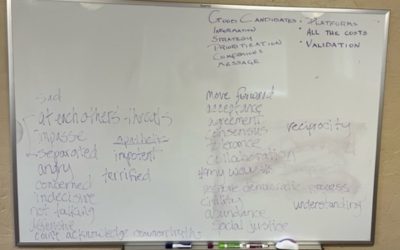 GOOD CANDIDATES:
INFORMATION
STRATEGY
PRIORITIZATION
MESSAGE
• PLATFORMS
• ALL THE COSTS
• VALIDATION
sad
- at each others throats
impasse
- separated
angry
concerned
indecisive
not talking
defensive
cant acknowledge commonalities
apathetic
impotent
terrified
move forward
acceptance
agreement
consensus
tolerance
collaboration
positive democratic process
civility
abundance
social justice
reciprocity
understanding